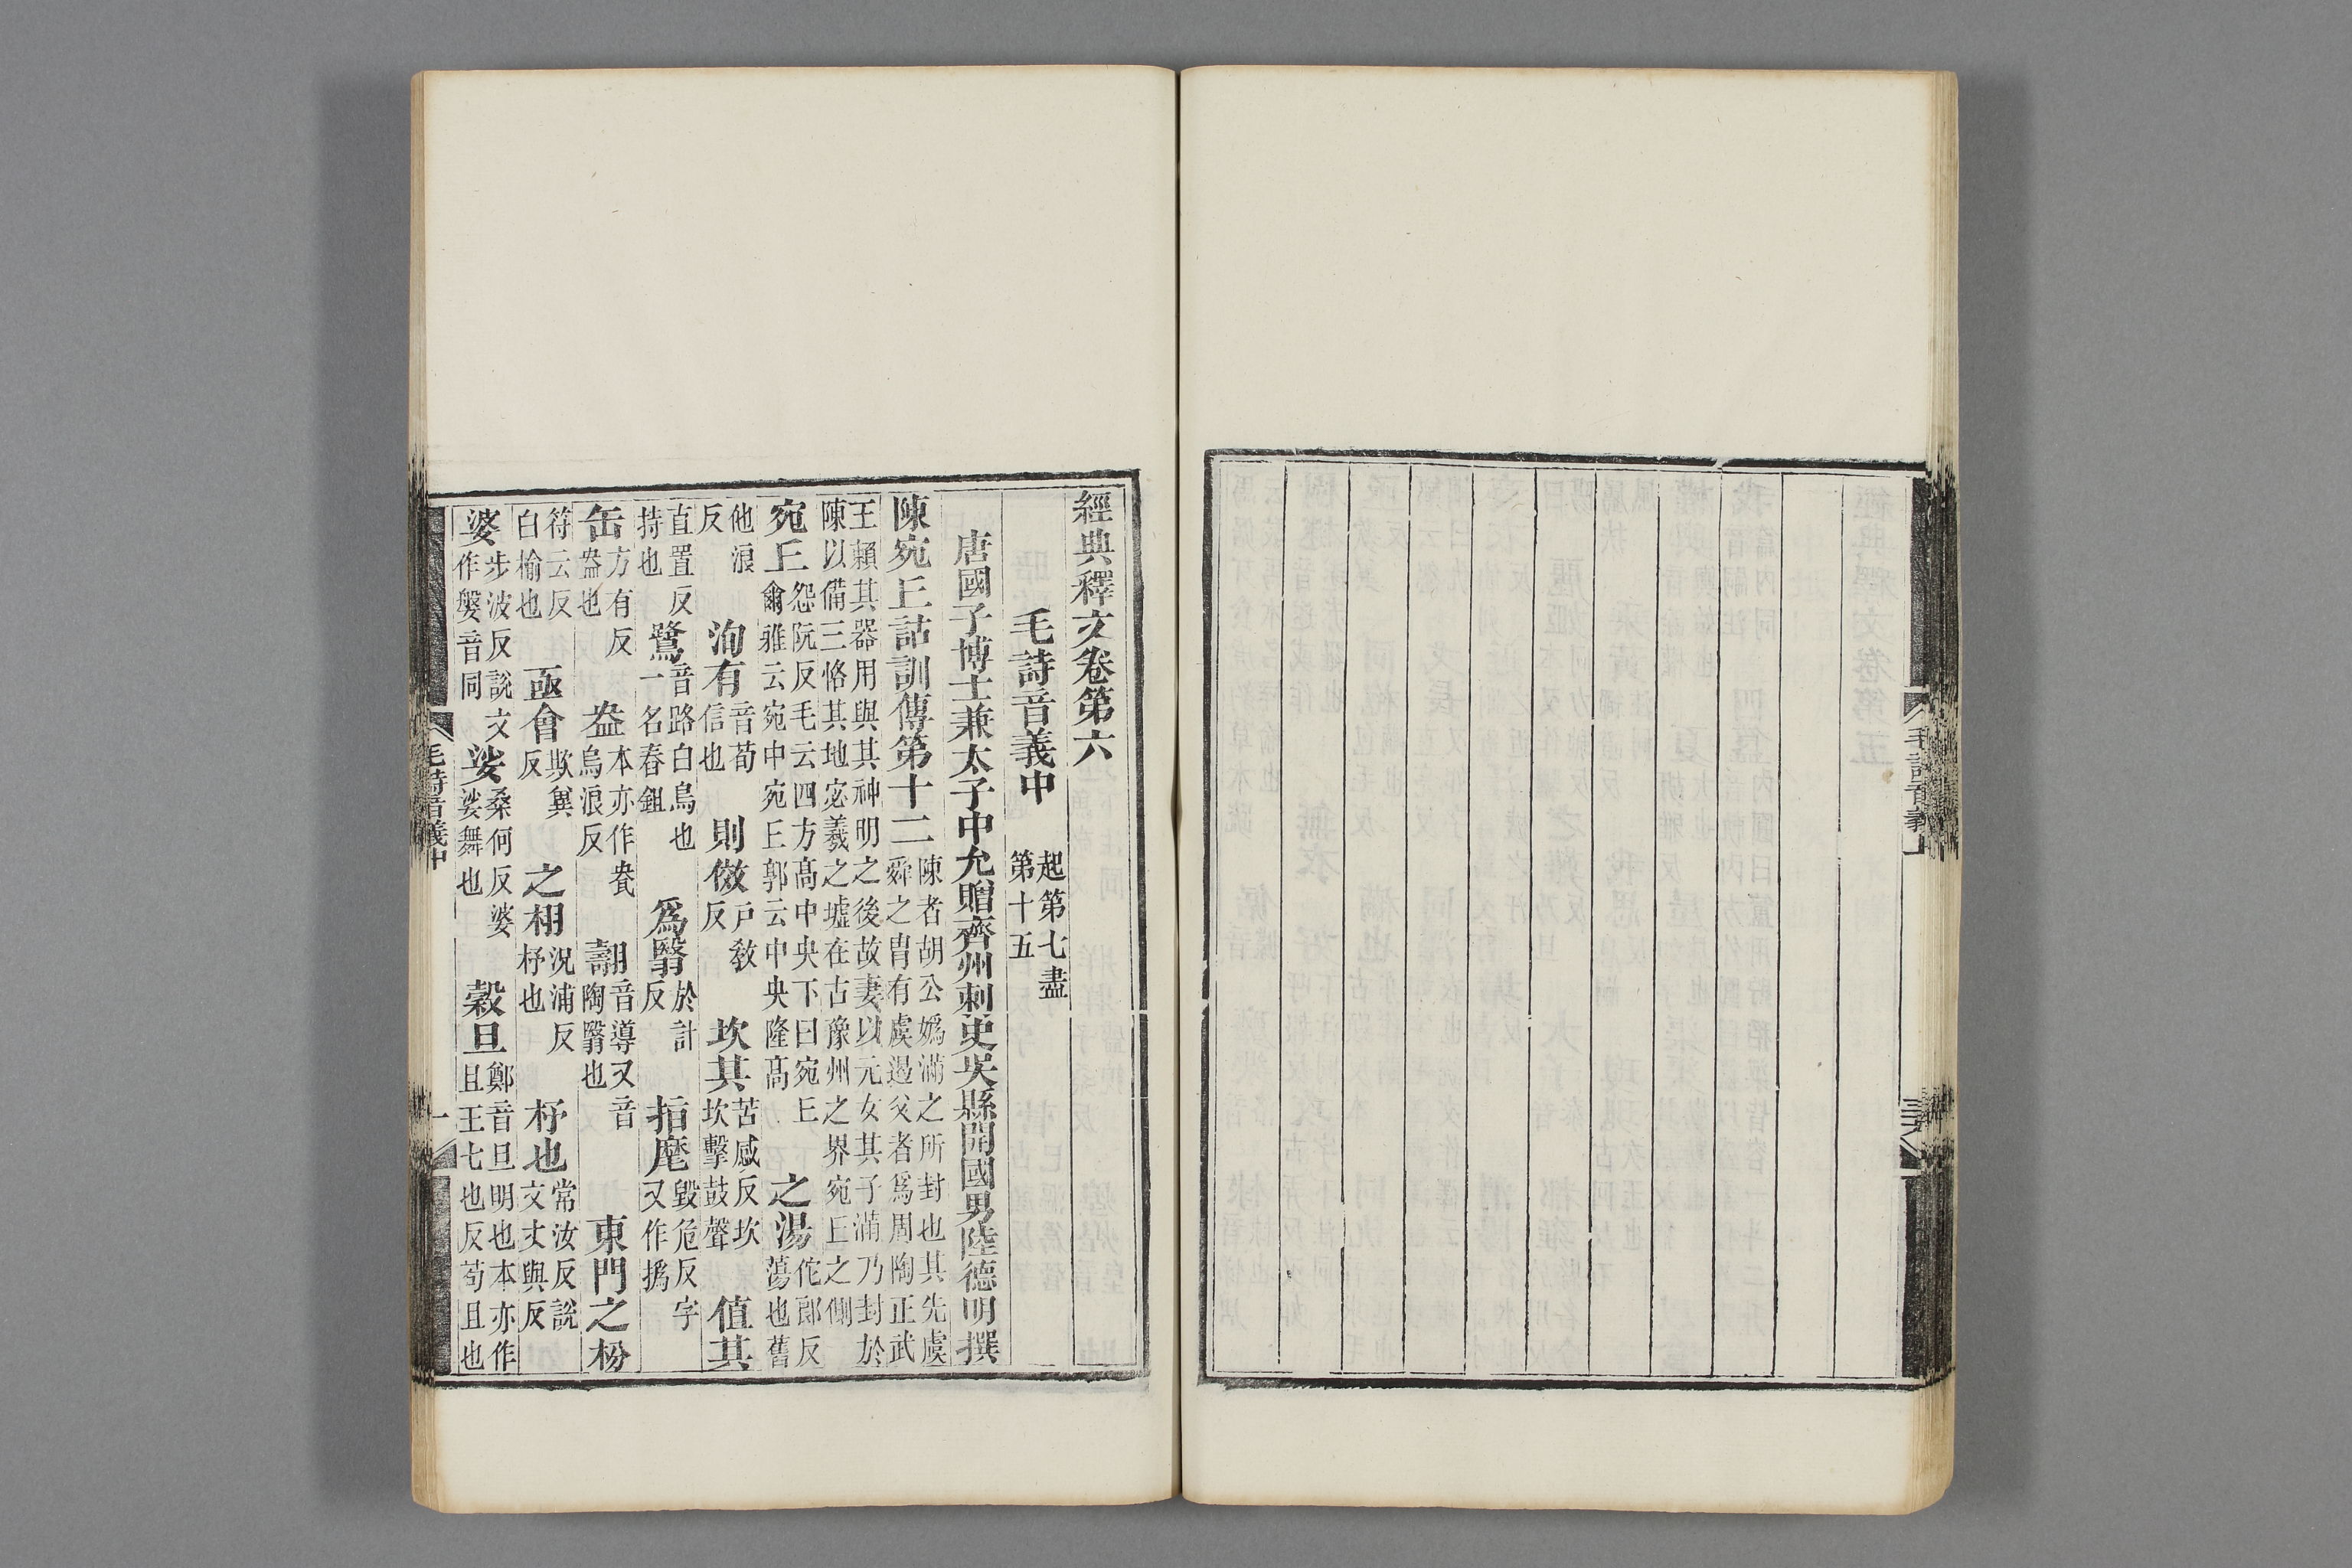 毛詩音義上
經典釋文卷第六
毛詩音義中 起第七盡第十五
唐國子博士兼太子中允贈齊州刺史吳縣開國男陸德明撰
陳宛丘詁訓傳第十二 陳者胡公嬀滿之所封也其先虞舜之胄有虞遏父者爲周陶正武
王賴其器用與其神明之後故妻以元女其子滿乃封於陳以備三恪其地宓羲之墟在古豫州之界宛丘之側
宛丘 怨阮反毛云四方髙中央下曰宛丘爾雅云宛中宛丘郭云中央隆髙 之湯 佗郎反蕩也舊
他浪反 洵有 音荀信也 則傚 戶敎反 坎其 苦感反坎坎擊鼓聲 值其
直置反持也 鷺 音路白鳥也一名舂鉏 爲翳 於計反 指麾 毀危反字又作撝
缶 方有反盎也 盎 本亦作瓫烏浪反 翿 音導又音陶翳也 東門之枌
符云反白榆也 亟會 欺兾反 之栩 況浦反杼也 杼也 常汝反說文丈與反
婆 步波反說文作媻音同 娑 桑何反婆娑舞也 榖旦 鄭音旦明也本亦作且王七也反苟且也
毛詩音義中 一